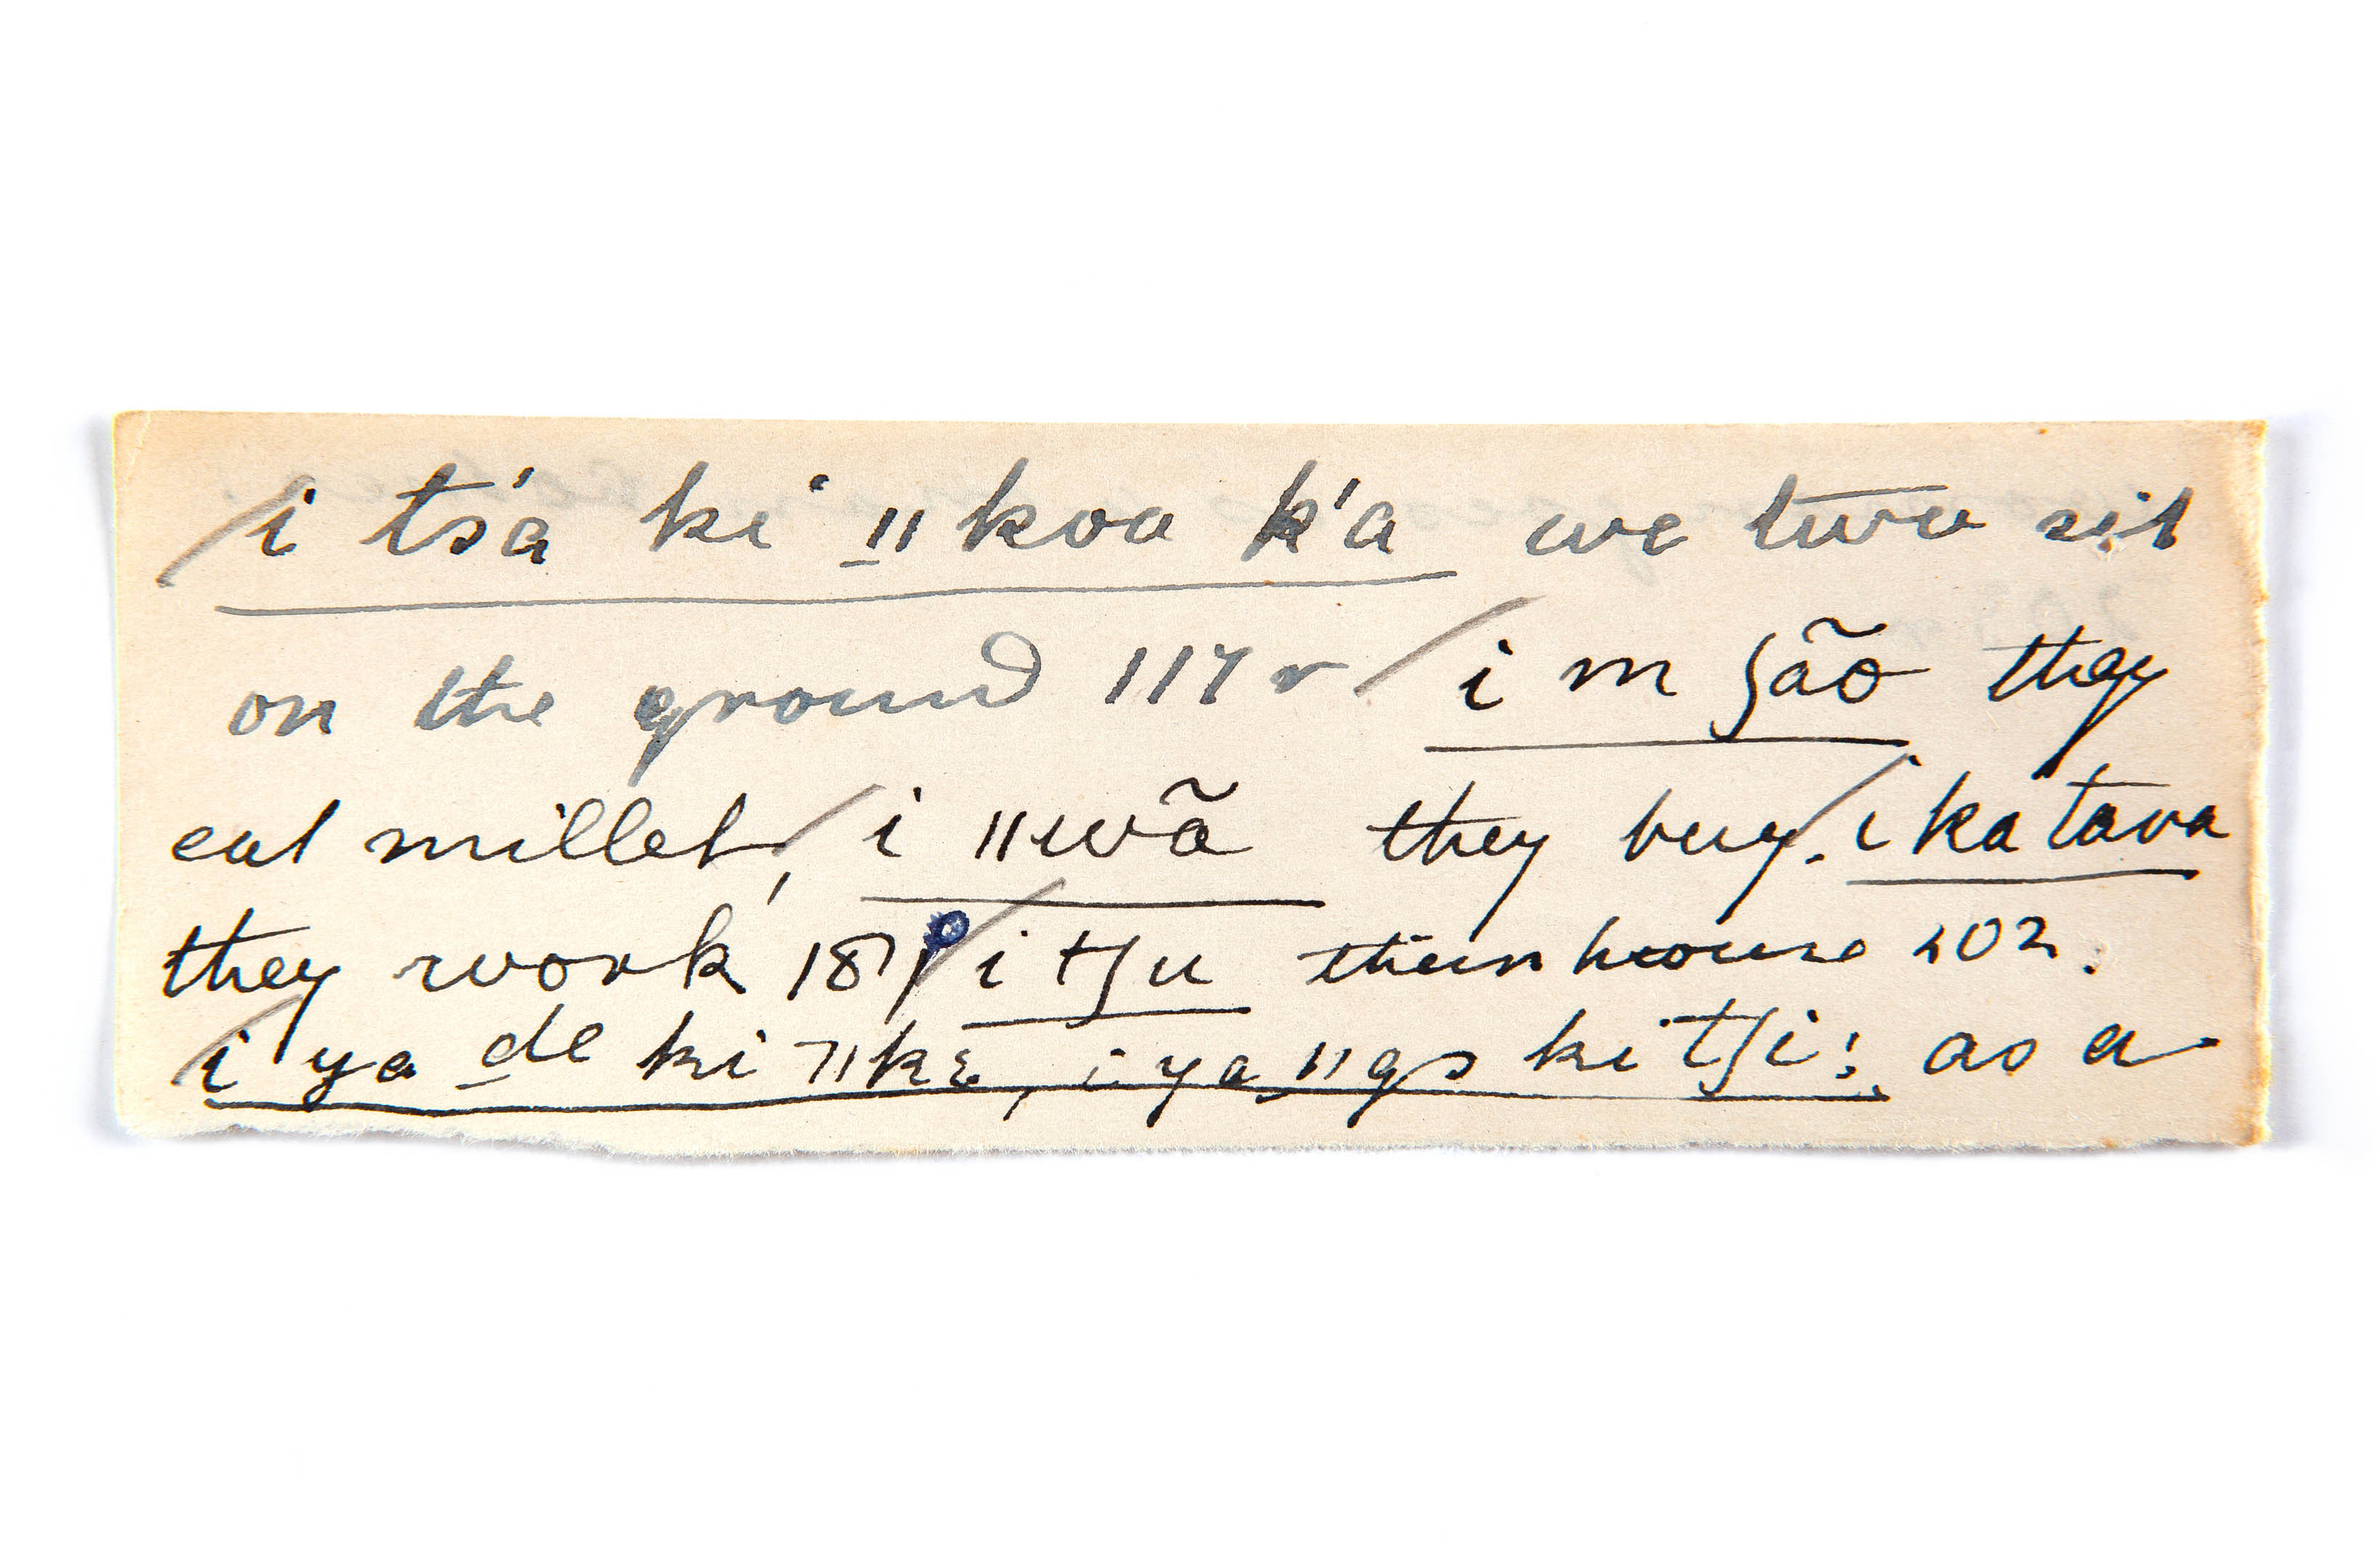 /i ts'a ki ǁkoa k'a we two sit
on the ground 117 r / i m ʃão they
eat millet, / i ǁwã they buy. / i ka tava
they work 187 / i tʃu their house 202.
/i ya de ki ǁkɛ, i ya ǁgo ki tʃi: as a